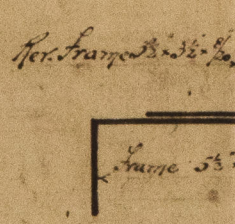 Rev. Frame 5½" × 3½" ×
Frame 5½"